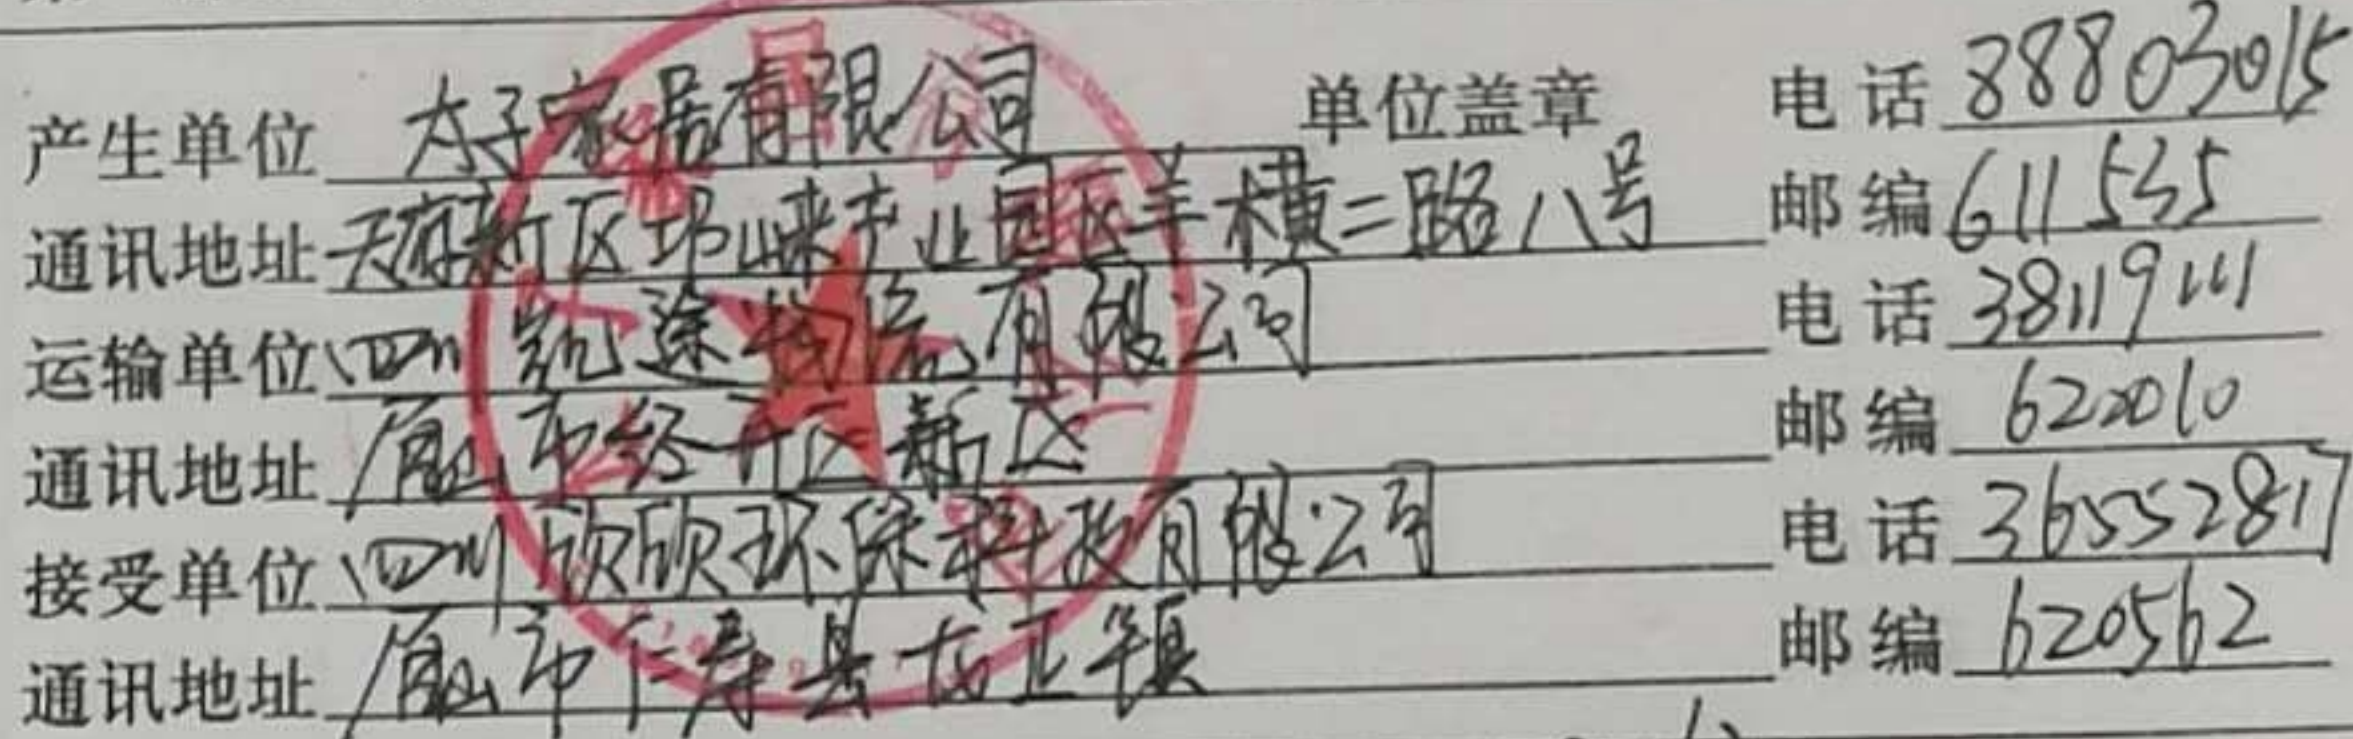 产生单位 太子家居有限公司 单位盖章 电话 88803015
通讯地址 天府新区邛崃产业园区羊横二路八号 邮编 611535
运输单位 四川凯途物流有限公司 电话 38119111
通讯地址 眉山市经开区新区 邮编 622010
接受单位 四川欣欣环保科技有限公司 电话 36552817
通讯地址 眉山市仁寿县龙正镇 邮编 620562